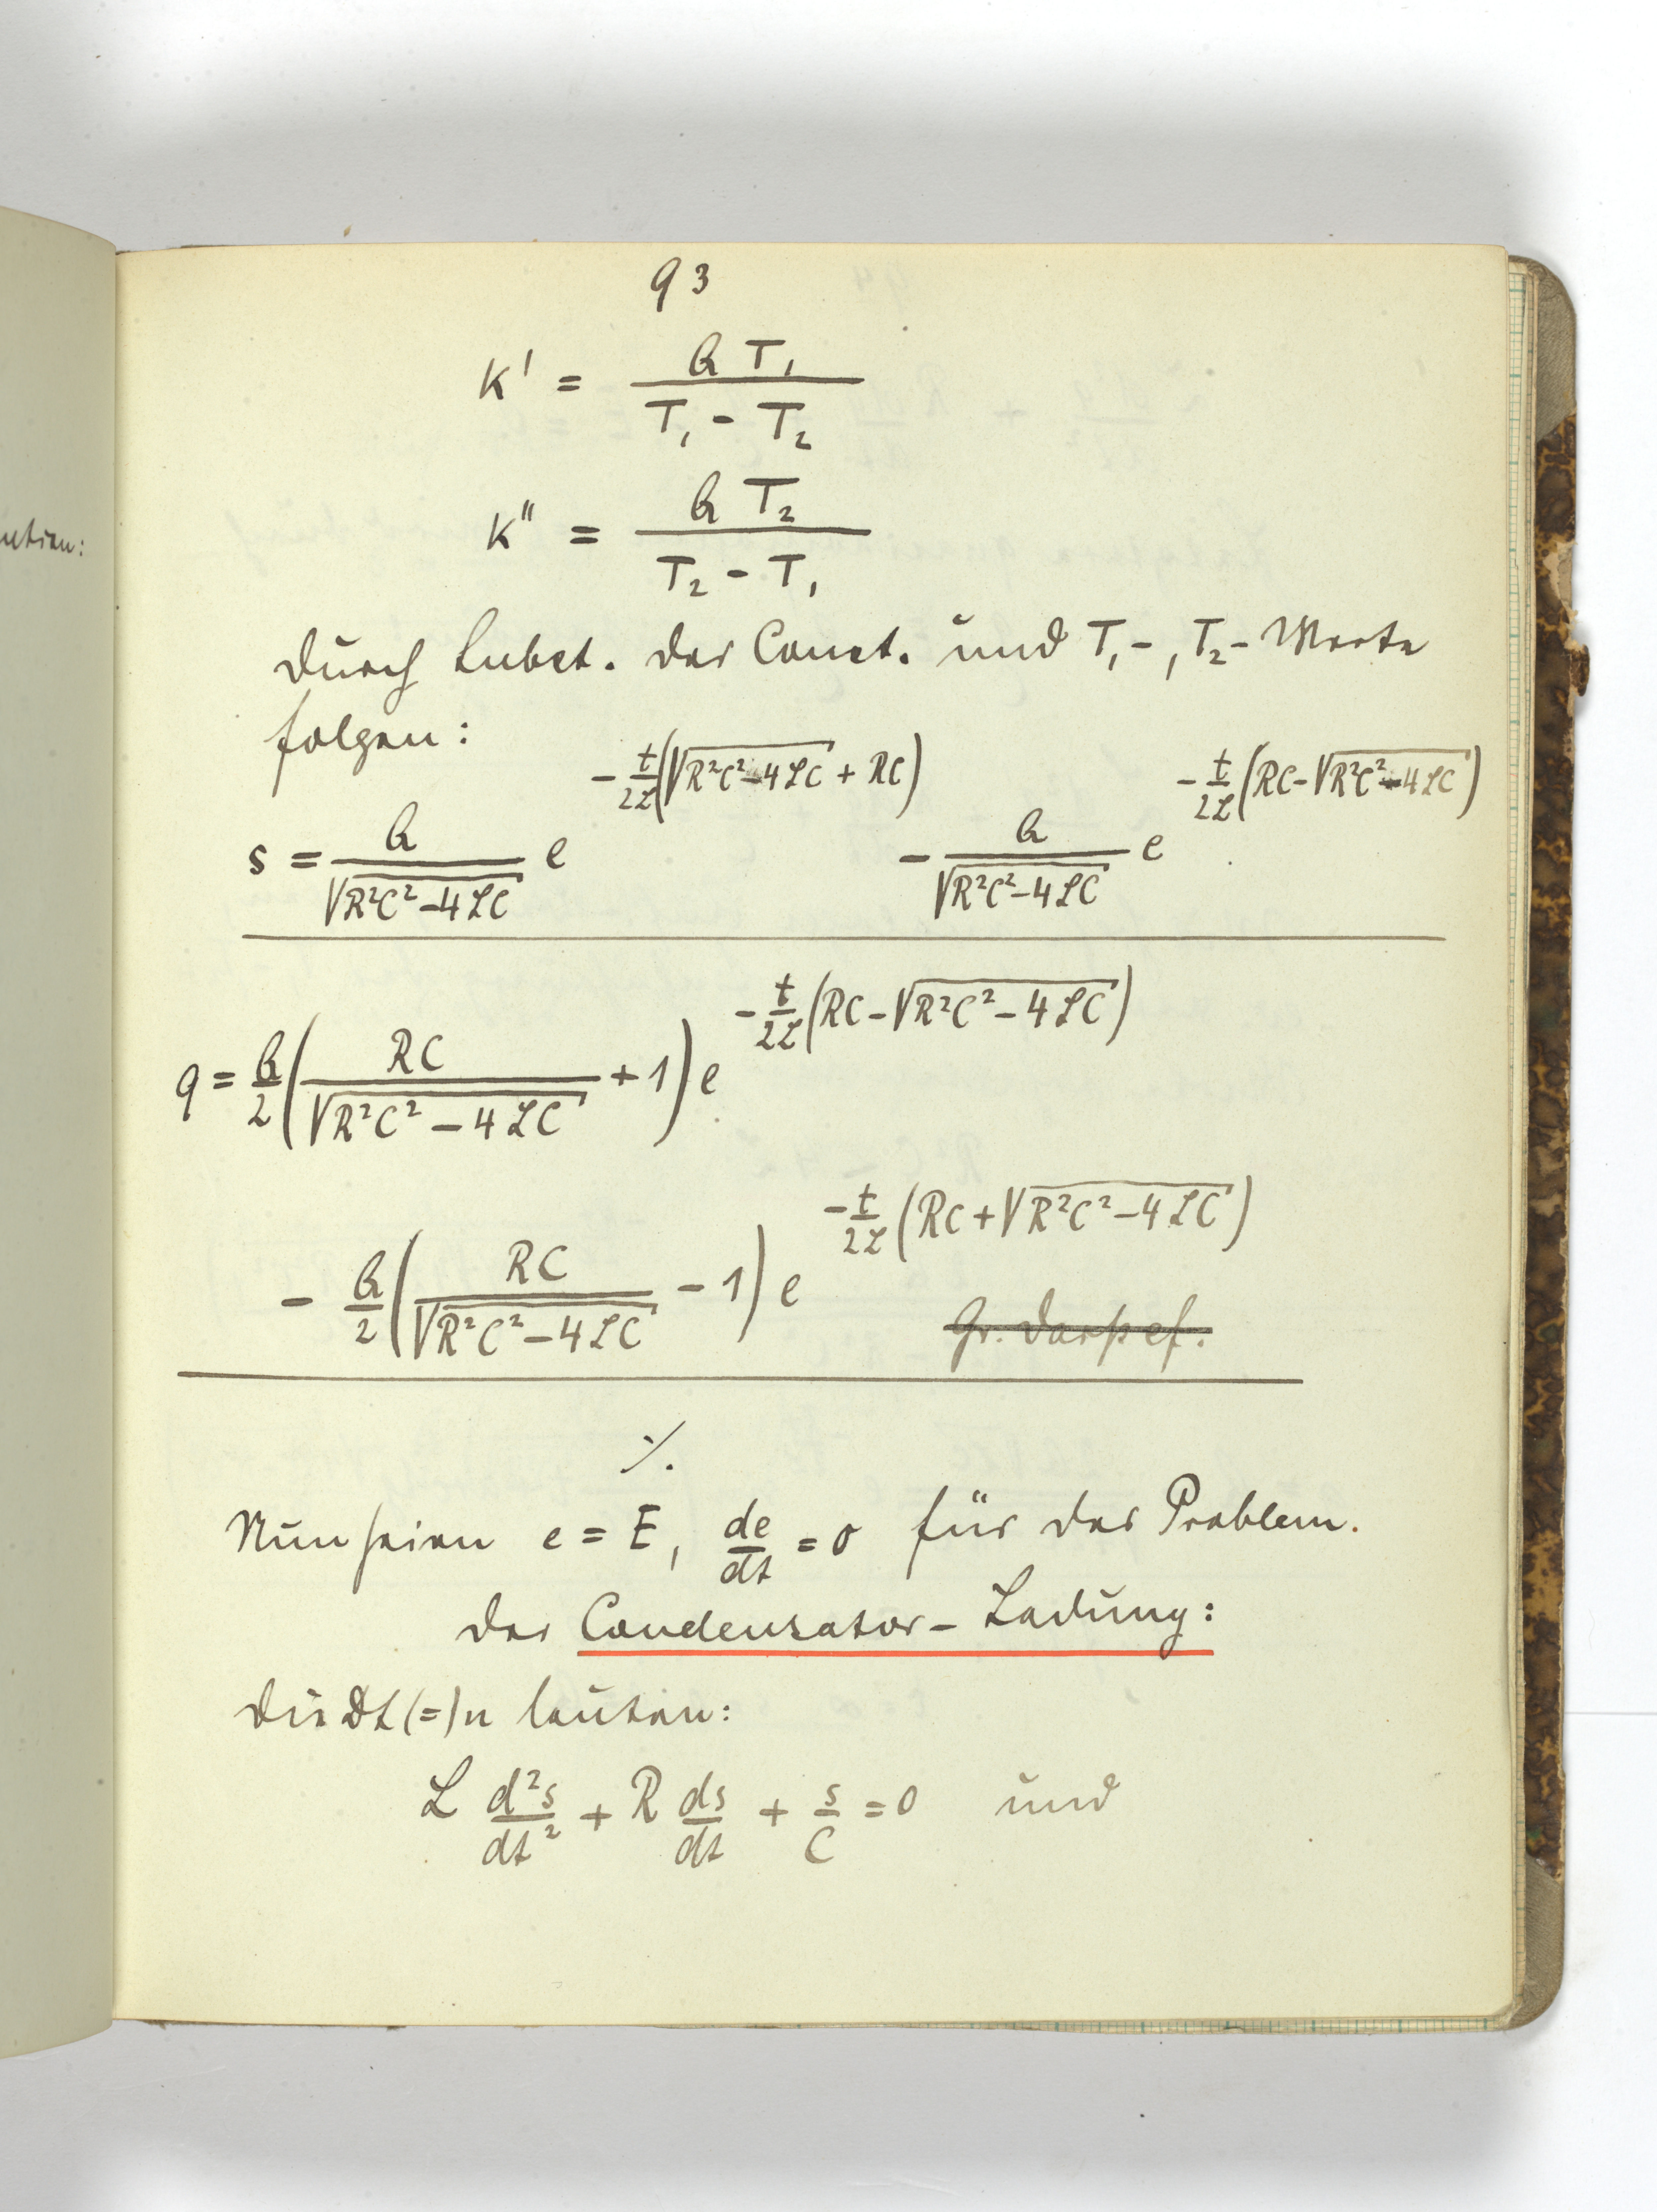 ution:
93
K' = Q T₁ / (T₁ - T₂)
K'' = Q T₂ / (T₂ - T₁)
Durch Subst. der Const. und T₁-, T₂- Werte
folgen:
s = Q / √(R²C² - 4LC) e^(-t/2L (√(R²C² - 4LC) + RC)) - Q / √(R²C² - 4LC) e^(-t/2L (RC - √(R²C² - 4LC)))
q = Q/2 (RC / √(R²C² - 4LC) + 1) e^(-t/2L (RC - √(R²C² - 4LC)))
- Q/2 (RC / √(R²C² - 4LC) - 1) e^(-t/2L (RC + √(R²C² - 4LC)))
Gr.
./.
Nun seien e = E, de/dt = 0 für das Problem.
der Condensator-Ladung:
Die Dt(=)n lauten:
L d²s/dt² + R ds/dt + s/C = 0 und